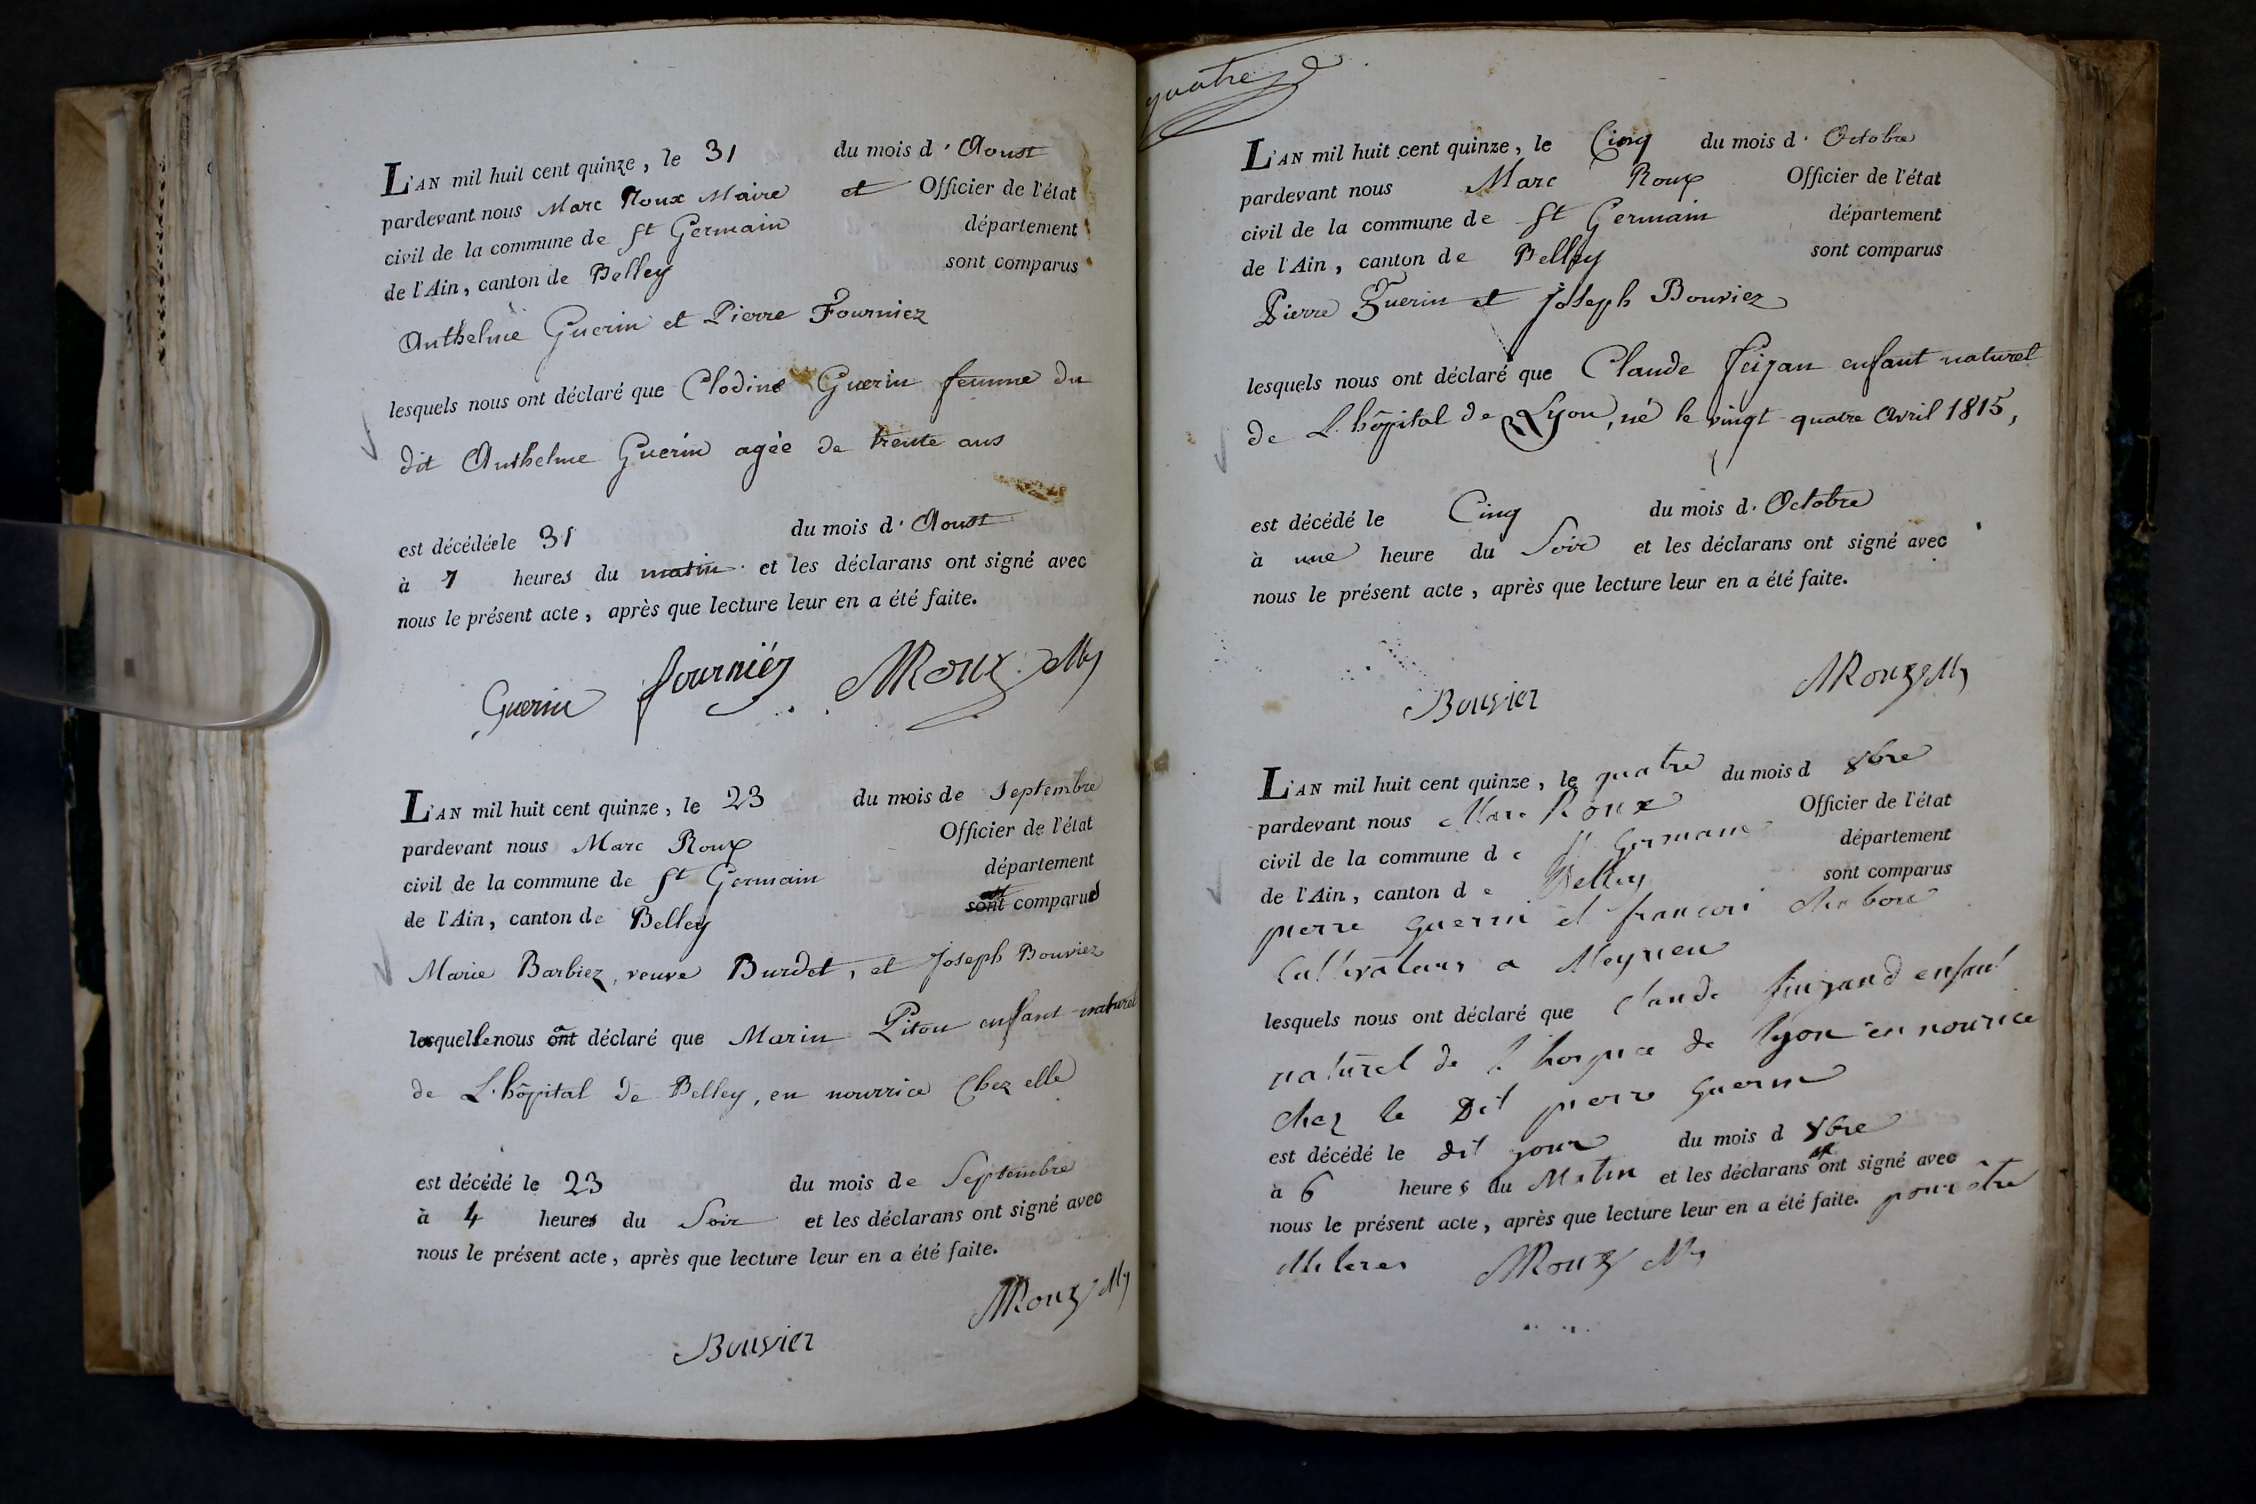 L'AN mil huit cent quinze, le 31 du mois d'Aoust
pardevant nous Marc Roux Maire et Officier de l'état
civil de la commune de St Germain département
de l'Ain, canton de Belley sont comparus
Anthelme Guerin et Pierre Fourniez
lesquels nous ont déclaré que Clodine Guerin femme du
dit Anthelme Guerin agée de trente ans
est décédée le 31 du mois d'Aoust
à 7 heures du matin et les déclarans ont signé avec
nous le présent acte, après que lecture leur en a été faite.
Guerin fourniéz MRoux My
L'AN mil huit cent quinze, le 23 du mois de Septembre
pardevant nous Marc Roux Officier de l'état
civil de la commune de St Germain département
de l'Ain, canton de Belley sont comparus
Marie Barbiez, veuve Burdet, et Joseph Bouviez
lesquelle nous ont déclaré que Marin Piton enfant naturel
de L'hôpital de Belley, en nourrice Chez elle
est décédé le 23 du mois de Septembre
à 4 heures du Soir et les déclarans ont signé avec
nous le présent acte, après que lecture leur en a été faite.
MRoux My
Bouvier
quatre
L'AN mil huit cent quinze, le Cinq du mois d'Octobre
pardevant nous Marc Roux Officier de l'état
civil de la commune de St Germain département
de l'Ain, canton de Belley sont comparus
Pierre Guerin et Joseph Bouviez
lesquels nous ont déclaré que Claude enfant naturel
de L'hôpital de Lyon, né le vingt-quatre Avril 1815,
est décédé le Cinq du mois d'Octobre
à une heure du Soir et les déclarans ont signé avec
nous le présent acte, après que lecture leur en a été faite.
MRoux My
Bouvier
L'AN mil huit cent quinze, le quatre du mois d 8bre
pardevant nous Marc Roux Officier de l'état
civil de la commune de St Germain département
de l'Ain, canton de Belley sont comparus
pierre guerin et francois
Cultivateurs a Meyrieu
lesquels nous ont déclaré que Claude enfant
naturel de l'hospice de lyon en nourice
chez le Dit pierre guerin
est décédé le dit jour du mois d 8bre
à 6 heures du Matin et les déclarans ont signé avec
nous le présent acte, après que lecture leur en a été faite. pour être
MRoux My